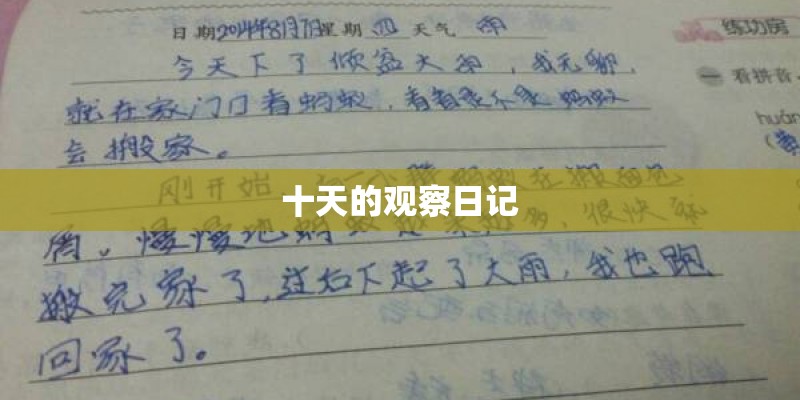 日期2014年8月7日星期四天气雨
今天下了倾盆大雨，我无聊，
就在家门口看蚂蚁，看看是不是蚂蚁
会搬家。
刚开始
十天的观察日记
慢慢地蚂蚁 多，很快就
搬完家了，过后下起了大雨，我也跑
回家了。
练功房
一 看拼音
huán